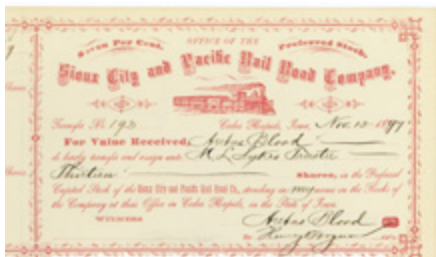 OFFICE OF THE
Seven Per Cent. Preferred Stock.
Sioux City and Pacific Rail Road Company.
Transfer No. 193 Cedar Rapids, Iowa, Nov. 12 1877
For Value Received, Aretas Blood
do hereby transfer and assign unto M L Sykes Trustee
Thirteen Shares, of the Preferred
Capital Stock of the Sioux City and Pacific Rail Road Co., standing in my name on the Books of
the Company at their Office in Cedar Rapids, in the State of Iowa.
WITNESS Aretas Blood
By Henry